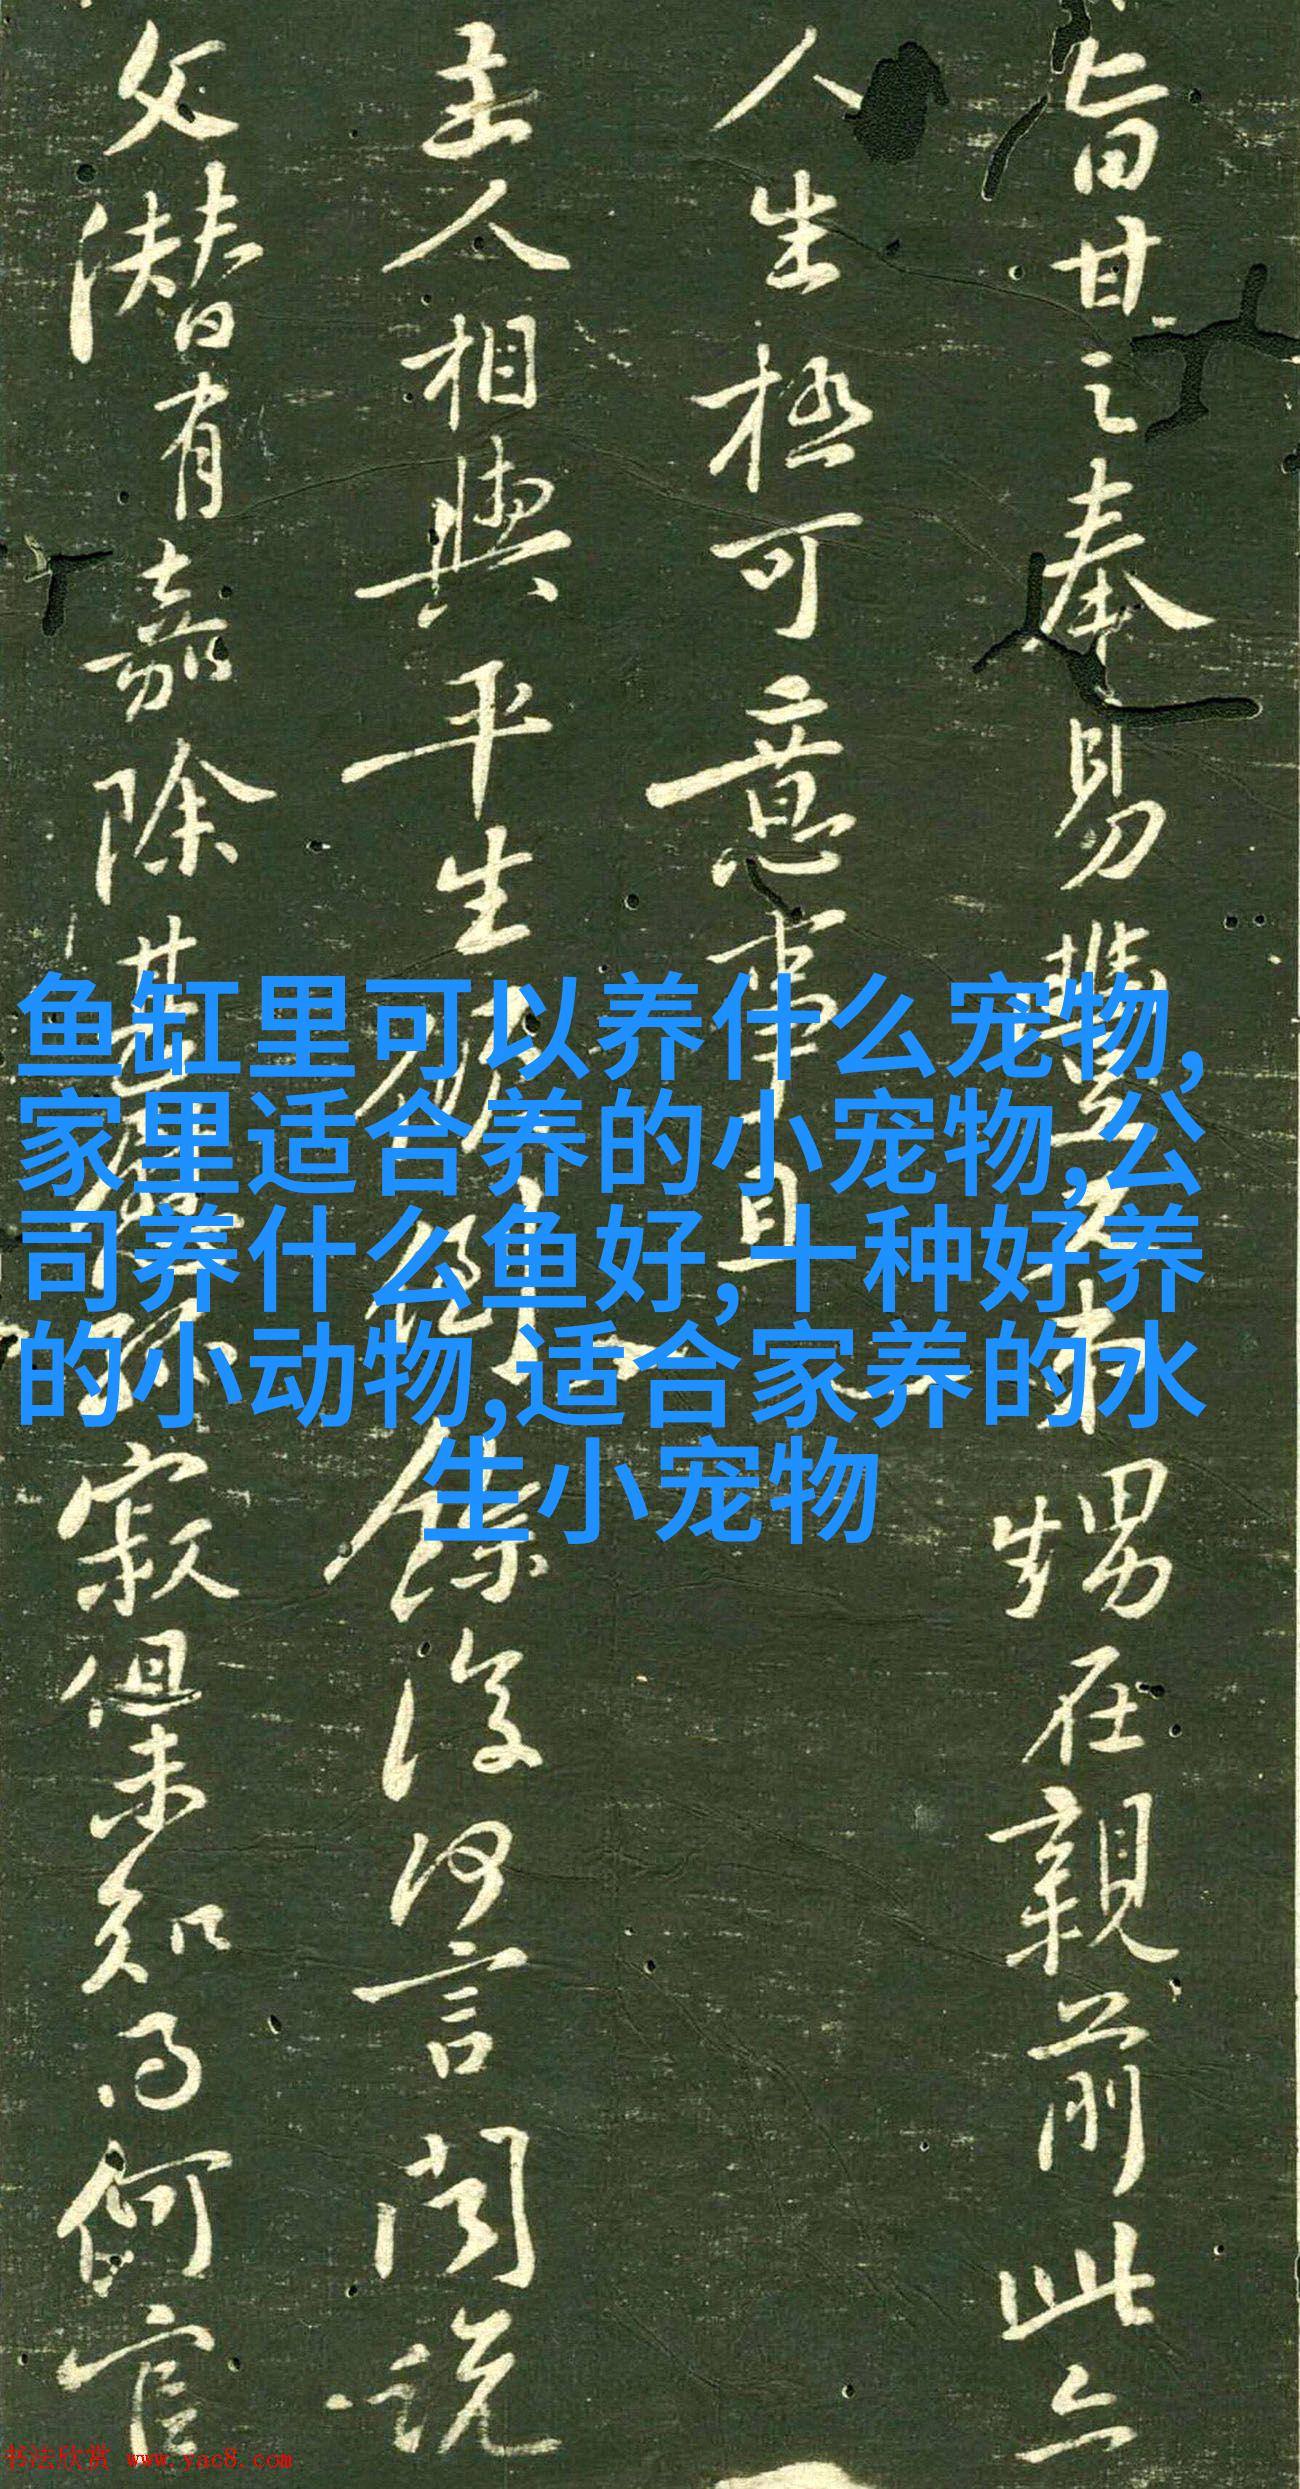 旨甘之奉易豊若甥在親前此亦
人生極可意事且
主人相與平生餘復何言閏説
父潜有嘉除甚寂但未知何官
鱼缸里可以养什么宠物,
家里适合养的小宠物,公
司养什么鱼好,十种好养
的小动物,适合家养的水
生小宠物
书法欣赏 www.yac8.com